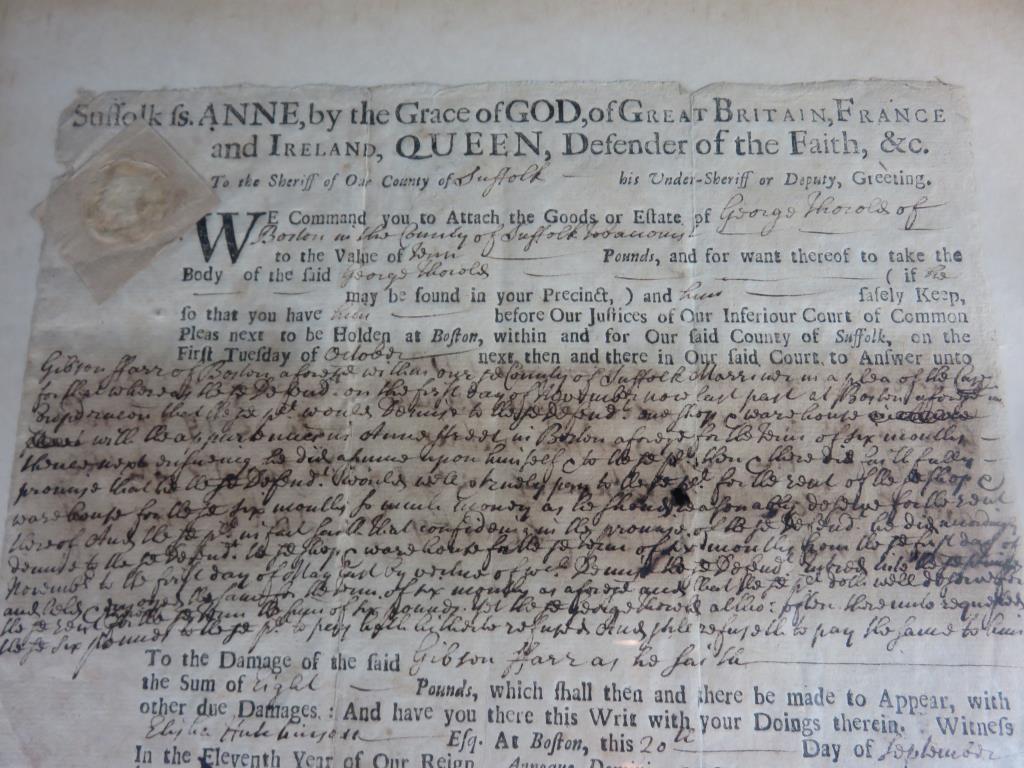 Suffolk ss. ANNE, by the Grace of GOD, of GREAT BRITAIN, FRANCE
and IRELAND, QUEEN, Defender of the Faith, &c.
To the Sheriff of Our County of Suffolk his Under-Sheriff or Deputy, Greeting.
WE Command you to Attach the Goods or Estate of George Thorold of
Boston in the County of Suffolk
to the Value of Tenn Pounds, and for want thereof to take the
Body of the said George Thorold ( if he
may be found in your Precinct, ) and him safely Keep,
so that you have him before Our Justices of Our Inferiour Court of Common
Pleas next to be Holden at Boston, within and for Our said County of Suffolk, on the
First Tuesday of October next then and there in Our said Court, to Answer unto
Gibson ffarr of Boston afores^d within our s^d County of Suffolk Marriner in a plea of the Case
for that whereas the s^d Defend^t on the first day of November now last past at Boston afores^d in
that the s^d pl^t would Demise to the s^d defend^t one shop & warehouse
with the appurtenances in Anne Street in Boston afores^d for the term of six months
thence next ensuing he did assume upon himself & to the s^d pl^t then & there did faithfully
promise that he the s^d Defend^t would well & truely pay to the s^d pl^t for the rent of the s^d shop &
warehouse for the s^d six months so much money as he should reasonably deserve for the rent
thereof And the s^d pl^t in fact saith that confiding in the promise of the s^d Defend^t he did accordingly
demise to the s^d Defend^t the s^d shop & warehouse for the s^d term of six months from the s^d first day of
November to the first day of May last by vertue of w^ch Demise the s^d Defend^t entred into the s^d
and held the same for the term of six months as afores^d and that the s^d pl^t doth well deserve for
the s^d rent the s^d term the sum of six pounds yet the s^d George Thorold altho: often thereunto requested
the s^d six pounds to the s^d pl^t to pay hath hitherto refused And still refuseth to pay the same to him
To the Damage of the said Gibson ffarr as he saith
the Sum of eight Pounds, which shall then and there be made to Appear, with
other due Damages: And have you there this Writ with your Doings therein. Witness
Elisha Hutchinson Esq. At Boston, this 20^th Day of September
In the Eleventh Year of Our Reign. Annoque Domini